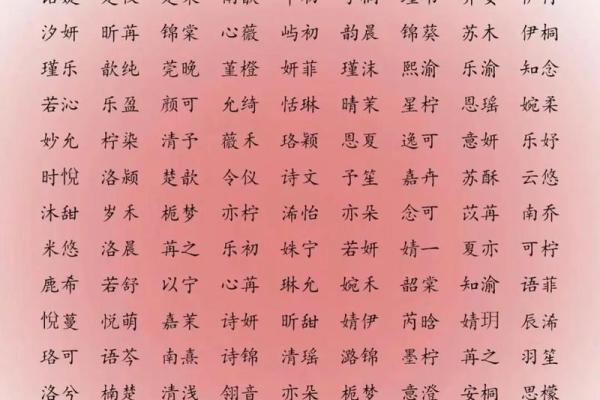 汐妍 昕苒 锦棠 心薇 屿初 韵晨 锦葵 苏木 伊桐
瑾乐 歆纯 莞晚 堇橙 妍菲 瑾沫 熙渝 乐渝 知念
若沁 乐盈 颜可 允绮 恬琳 晴茉 星柠 恩瑶 婉柔
妙允 柠染 清予 薇禾 珞颖 恩夏 逸可 意妍 乐妤
时悦 洛颍 楚歆 令仪 诗文 予笙 嘉卉 苏酥 云悠
沐甜 岁禾 栀梦 亦柠 浠怡 亦朵 念可 苡苒 南乔
米悠 洛晨 苒之 乐初 姝宁 若妍 婧一 夏亦 可柠
鹿希 若舒 以宁 心苒 琳允 婉禾 韶棠 知渝 语菲
悦蔓 悦萌 嘉茉 诗妍 昕甜 婧伊 芮晗 婧玥 辰浠
珞可 语芩 南熹 诗锦 清瑶 潞锦 墨柠 苒之 羽笙
洛兮 楠楚 清浅 翎音 亦朵 栀梦 意澄 安桐 思檬